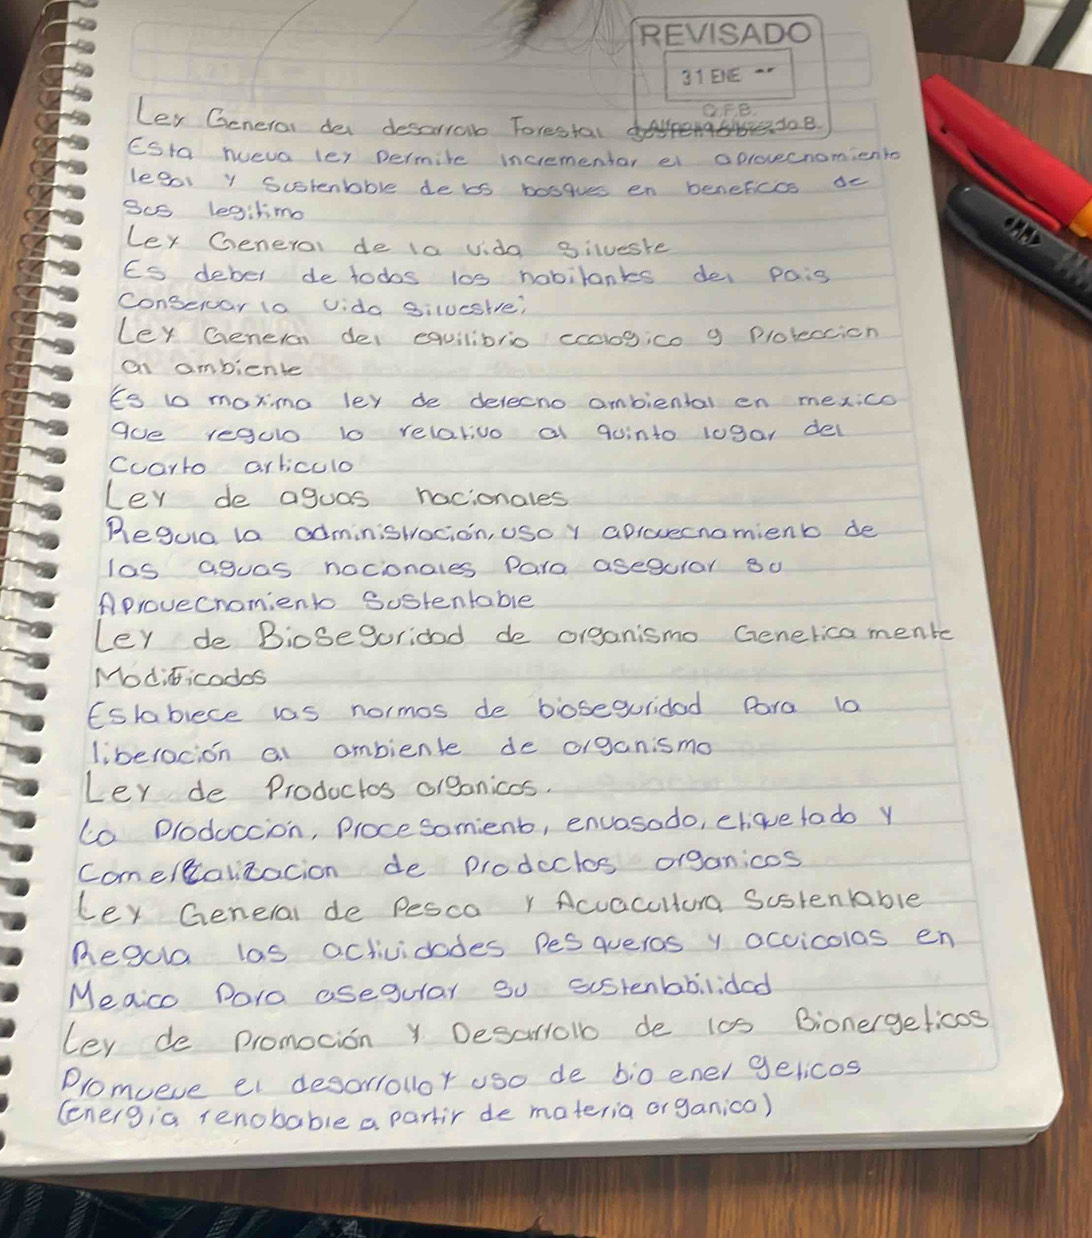 REVISADO
31 ENE
Q.F.B.
Ley General del desarrollo Forestal
Esta nueva ley permite incrementar el aprovechamiento
legal y sustentable de los bosques en beneficos de
sus legitimo
Ley General de la vida silveste
Es deber de todos los habitantes del pais
conservar la vida silvestre;
Ley General del equilibrio ecologico y Proteccion
al ambiente
Es la maxima ley de derecho ambiental en mexico
que regula lo relativo al quinto lugar del
cuarto articulo
Ley de aguas nacionales
Regula la administración, uso y aprovechamiento de
las aguas nacionales Para asegurar su
Aprovechamiento Sustentable
Ley de Bioseguridad de organismo Geneticamente
Modificados
Establece las normas de bioseguridad Para la
liberación al ambiente de organismo
Ley de Productos organicos.
La Produccion, Procesamiento, envasado, etiquetado y
comercializacion de productos organicos
Ley General de Pesca y Acuacultura Sustentable
Regula las actividades Pesqueros y acuicolas en
Mexico Para asegurar su sustentabilidad
Ley de Promoción y Desarrollo de los Bionergeticos
Promueve el desarrollo y uso de bioenergeticos
(energia renobable a partir de materia organica)